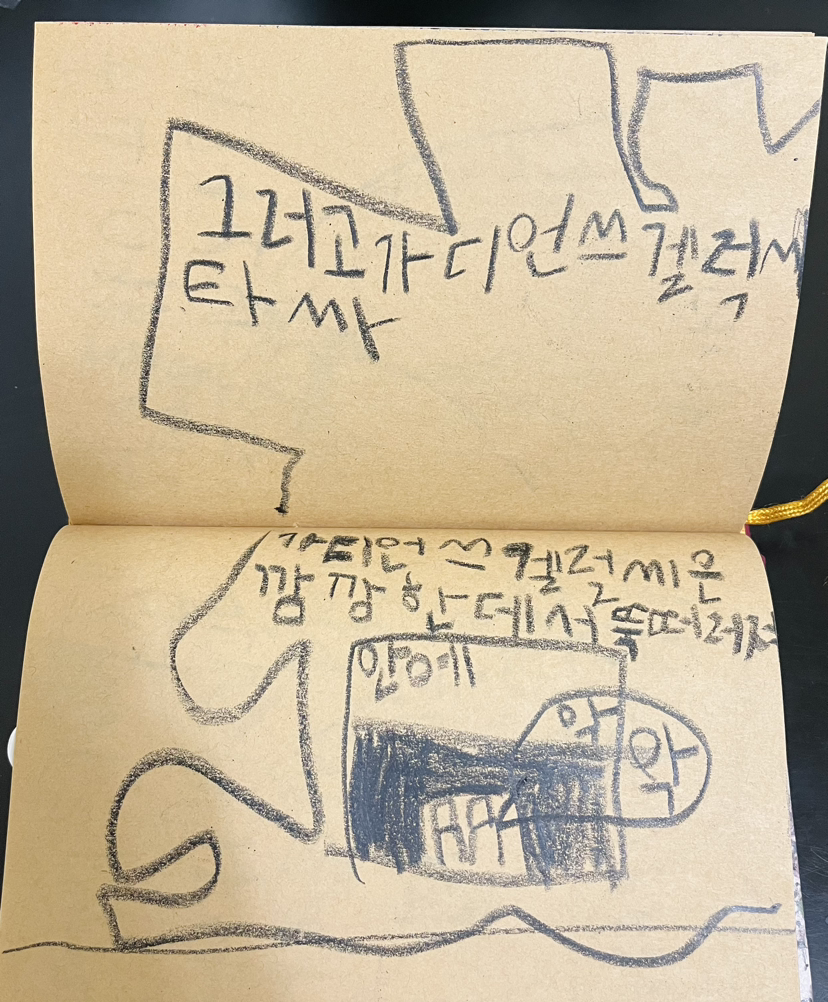 그러고가디언쓰겔럭씨
타싸
가디언쓰겔럭씨은
깜깜한데서뚝떠러져
안에
악
악